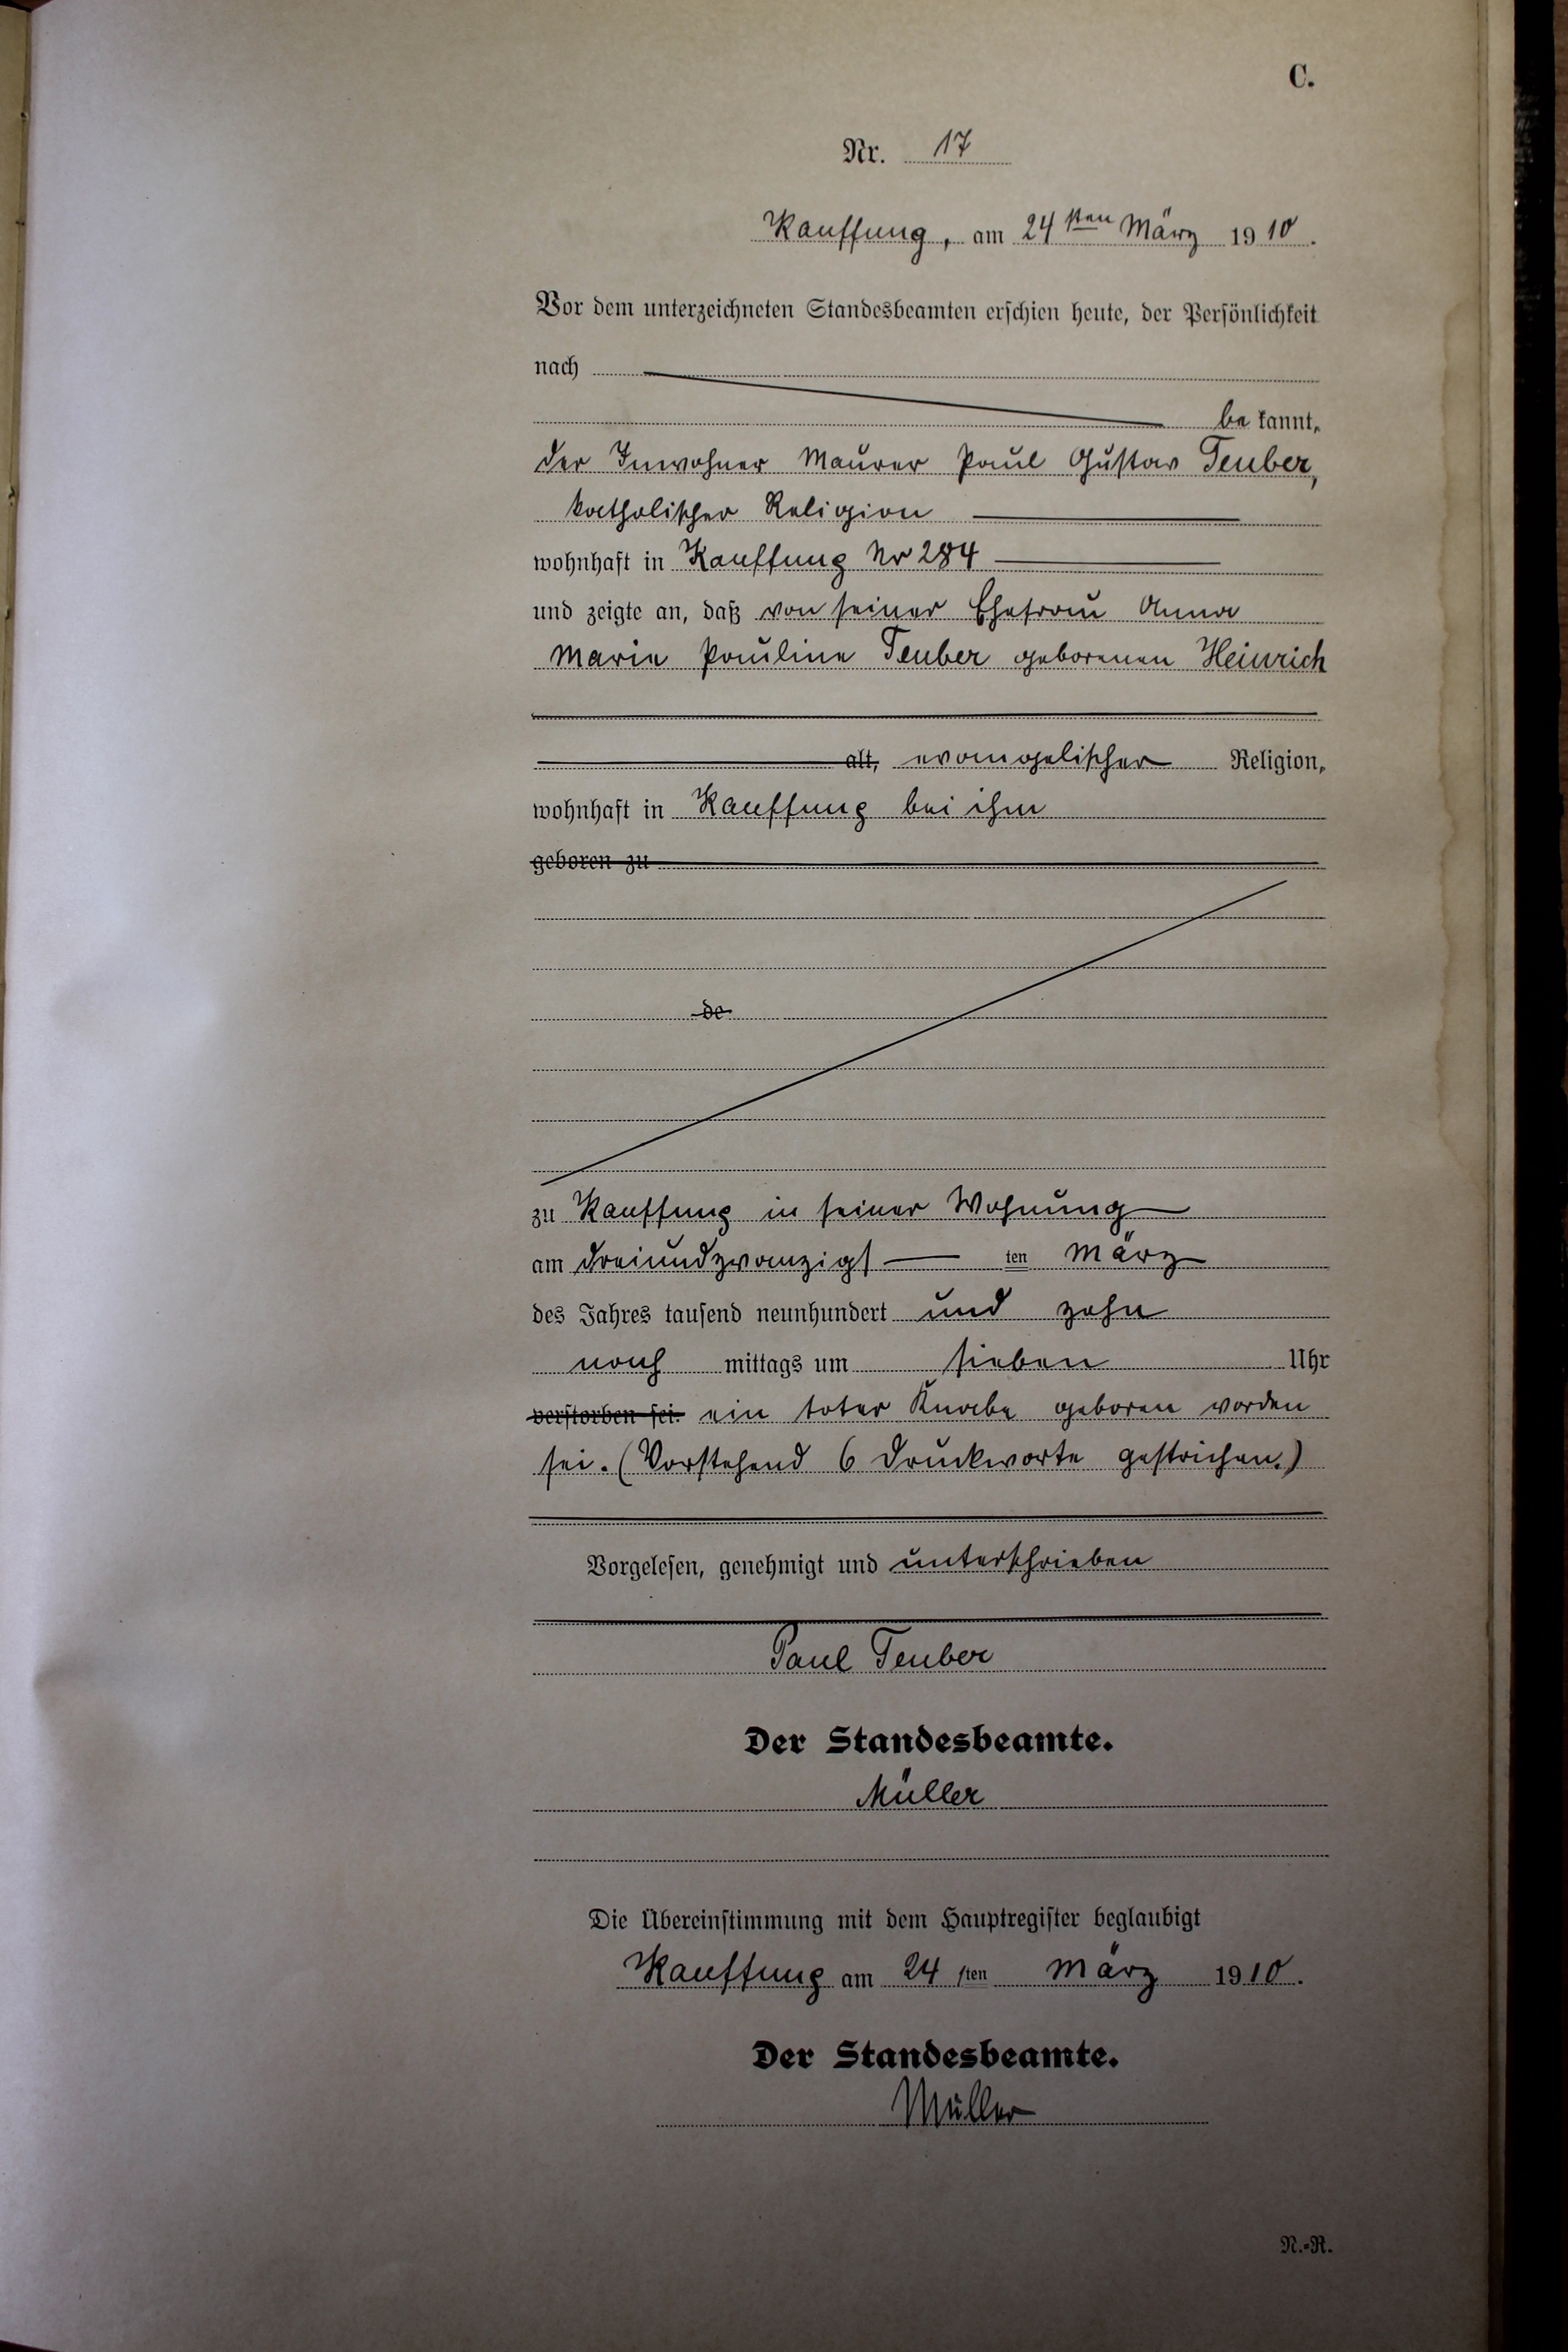 C.
Nr. 17
Kauffung, am 24sten März 1910.
Vor dem unterzeichneten Standesbeamten erschien heute, der Persönlichkeit
nach
be kannt,
der Inwohner Maurer Paul Gustav Teuber,
katholischer Religion
wohnhaft in Kauffung Nr 284
und zeigte an, daß von seiner Ehefrau Anna
Marie Pauline Teuber geborenen Heinrich
alt, evangelischer Religion,
wohnhaft in Kauffung bei ihm
geboren zu
de
zu Kauffung in seiner Wohnung
am dreiundzwanzigsten März
des Jahres tausend neunhundert und zehn
nach mittags um sieben Uhr
verstorben sei. ein toter Knabe geboren worden
sei. (Vorstehend 6 Druckworte gestrichen.)
Vorgelesen, genehmigt und unterschrieben
Paul Teuber
Der Standesbeamte.
Müller
Die Übereinstimmung mit dem Hauptregister beglaubigt
Kauffung am 24sten März 1910.
Der Standesbeamte.
Müller
N.-R.